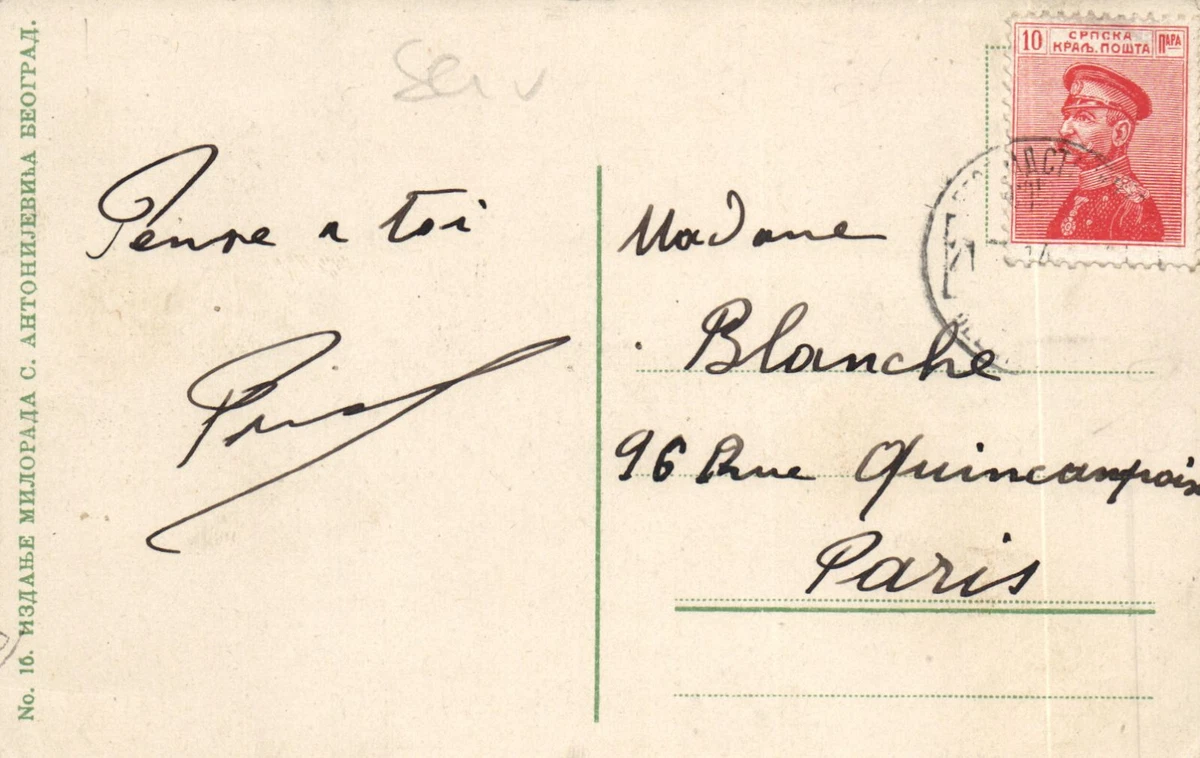 No. 16. ИЗДАЊЕ МИЛОРАДА С. АНТОНИЈЕВИЋА БЕОГРАД.
10 СРПСКА ПАРА
КРАЉ. ПОШТА
Pense a toi
Madame
Blanche
96 Rue Quincampoix
Paris